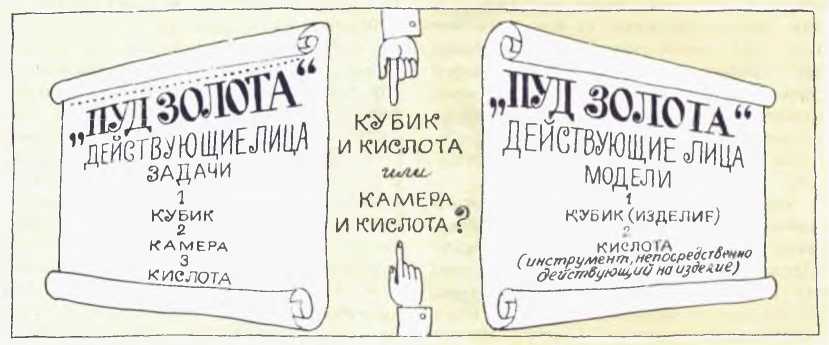 „ПУД ЗОЛОТА“
ДЕЙСТВУЮЩИЕ ЛИЦА
ЗАДАЧИ
1
КУБИК
2
КАМЕРА
3
КИСЛОТА
КУБИК
И КИСЛОТА
или
КАМЕРА
И КИСЛОТА?
„ПУД ЗОЛОТА“
ДЕЙСТВУЮЩИЕ ЛИЦА
МОДЕЛИ
1
КУБИК (ИЗДЕЛИЕ)
2
КИСЛОТА
(инструмент, непосредственно
действующий на изделие)